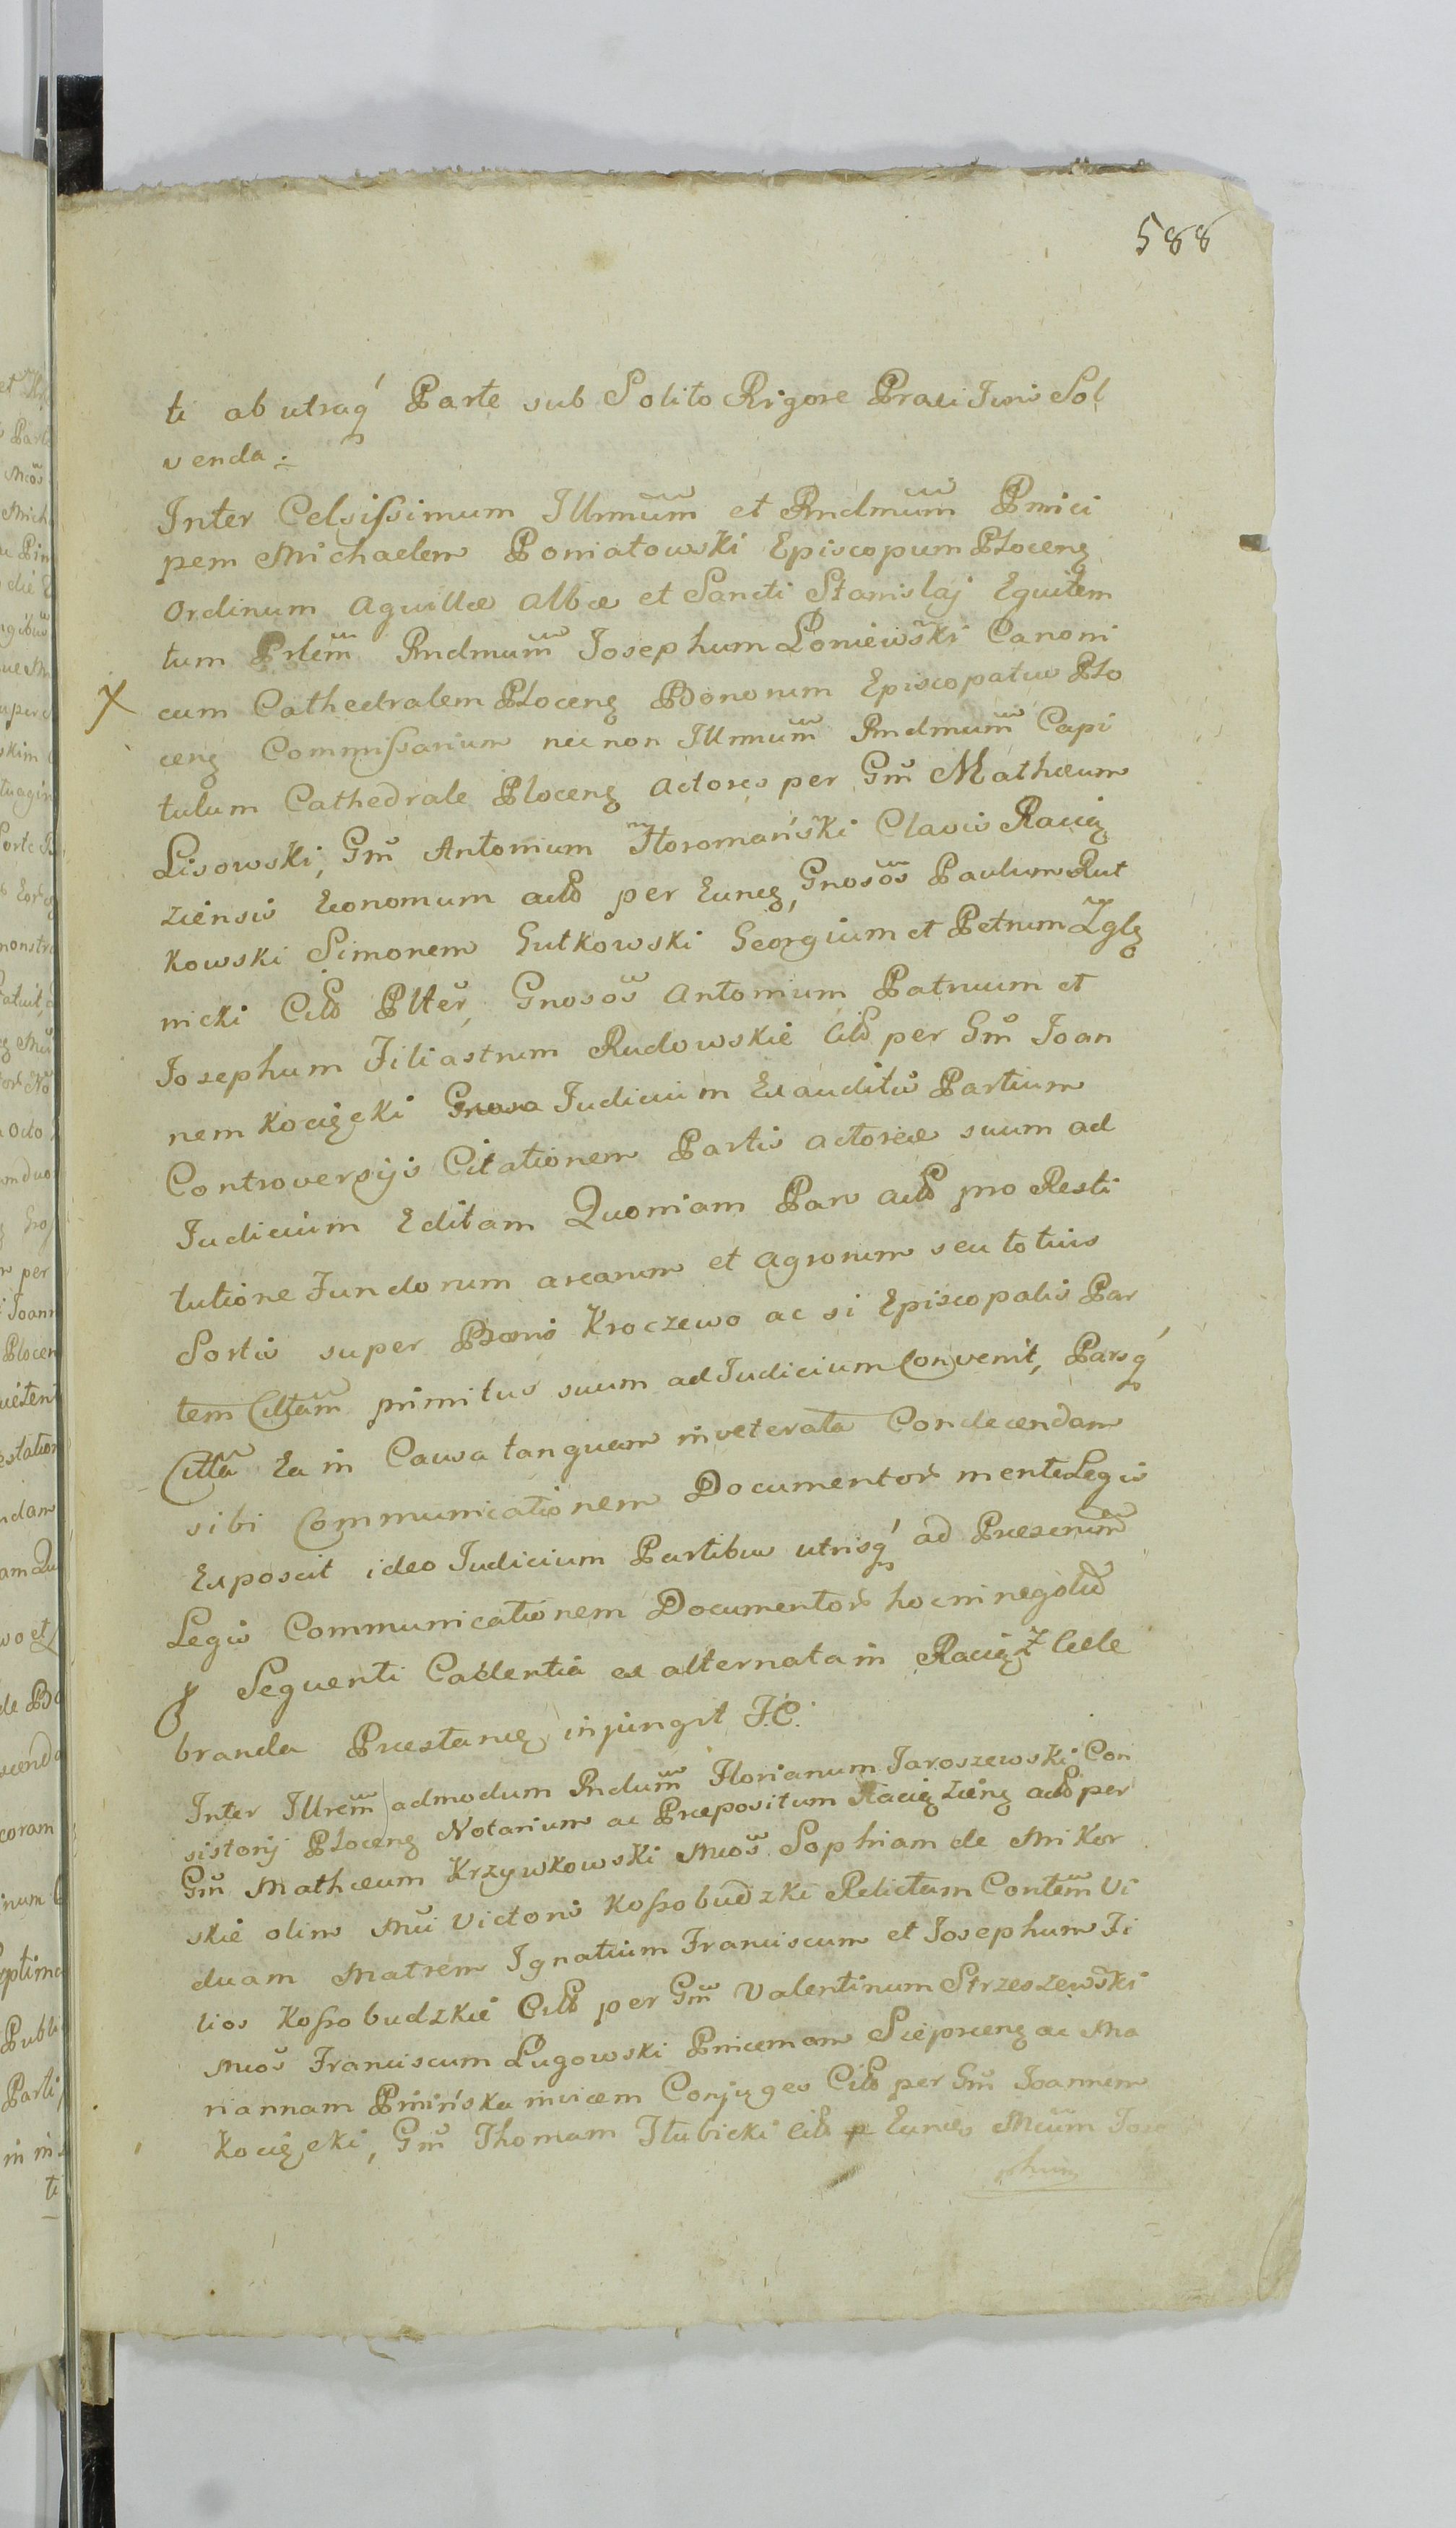 588
ti ab utraq́ Parte sub Solito Rigore Praevi Juris Sol
venda.
Inter Celsissimum Illrmum̃ et Rndmum̃ Prnici
pem Michaelem Poniatowski Episcopum Ploceng
Ordinum Aquillæ Albæ et Sancti Stanislaj Equitem
tum Prlem̃ Rndmum̃ Josephum Łoniewski Canoni
cum Cathedralem Ploceng Bonorum Episcopatus Plo
ceng Commissarium nec non Illrmum̃ Rndmum̃ Capi
tulum Cathedrale Ploceng Actores per Gm̃ Mathæum
Lisowski, Gm̃ Antonium Floromański Clavis Raciąz
ziensis Economum per Eund, Gnosos̃ Paulum Rut
kowski Simonem Gutkowski Georgium et Petrum Zgle
nicki Plter, Gnosos̃ Antonium Patruum et
Josephum Filiastrum Rudowskie per Gm̃ Joan
nem Kocięcki Judicium Exauditis Partium
Controversijs Citationem Partis Actoreæ suum ad
Judicium Editam Quoniam Pars pro Resti
tutione Fundorum arearum et Agrorum seu totius
Sortis super Bonis Kroczewo ac si Episcopalis Par
tem Citam̃ primitus suum ad Judicium Convenit, Parsq́
Citta Ea in Causa tanquam inveterata Condecendam
sibi Communicationem Documentor mente Legis
Exposcit ideo Judicium Partibus utrisq́ ad Præscrum̃
Legis Communicationem Documentor hoc in negotio
Sequenti Cadentia ex alternata in Raciąz Cele
branda Præstand injungit J.C.
Inter Illrem̃ admodum Rndum̃ Florianum Jaroszewski Con
sistorij Ploceng Notarium ac Præpositum Raciązieng per
Gm̃ Mathæum Krzywkowski Mos̃ Sophiam de Mikor
skie olim Mũi Victoris Kossobudzki Relictam Contem̃ Vi
duam Matrem Ignatium Franciscum et Josephum Fi
lios Kossobudzkie per Gm̃ Valentinum Strzeszewski
Mos̃ Franciscum Ługowski Pnicernam Sieprceng ac Ma
riannam Pninska invicem Conjuges per Gm̃ Joannem
Kocięcki, Gm̃ Thomam Hubicki p Eund Mũum Jose
phum